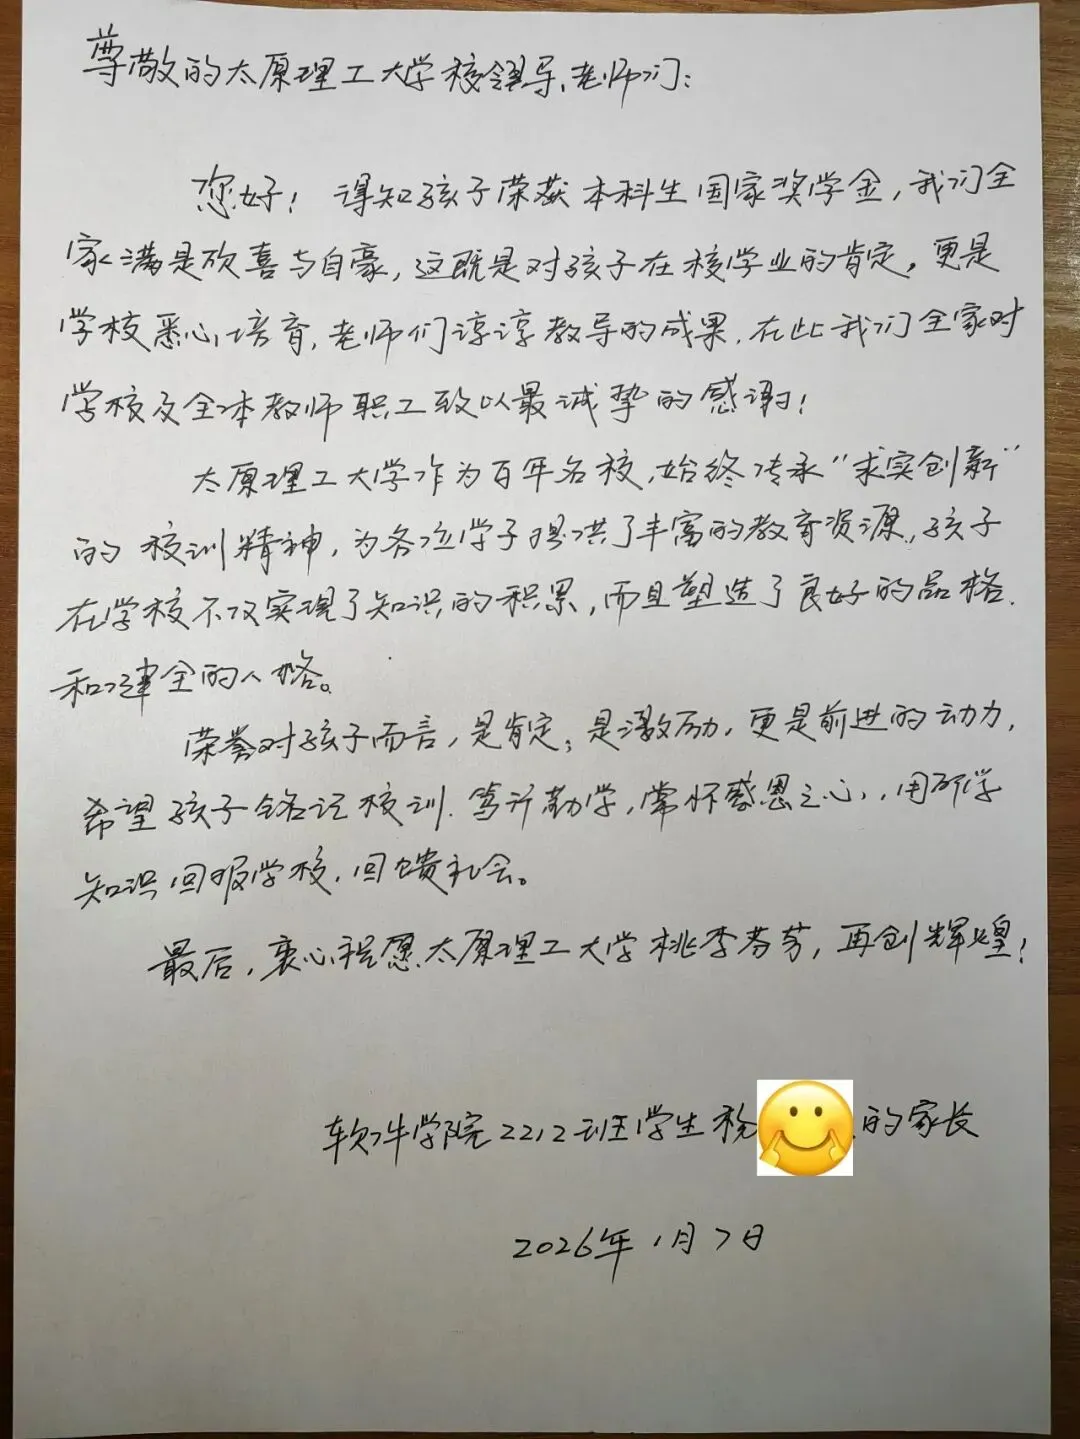 尊敬的太原理工大学校领导、老师们：
您好！得知孩子荣获本科生国家奖学金，我们全
家满是欣喜与自豪，这既是对孩子在校学业的肯定，更是
学校悉心培育，老师们谆谆教导的成果，在此我们全家对
学校及全体教师职工致以最诚挚的感谢！
太原理工大学作为百年名校，始终传承“求实创新”
的校训精神，为各位学子提供了丰富的教育资源，孩子
在学校不仅实现了知识的积累，而且塑造了良好的品格
和健全的人格。
荣誉对孩子而言，是肯定；是激励，更是前进的动力，
希望孩子铭记校训，笃行勤学，常怀感恩之心，用所学
知识回报学校，回馈社会。
最后，衷心祝愿太原理工大学桃李芬芳，再创辉煌！
软件学院2212班学生 的家长
2026年1月7日